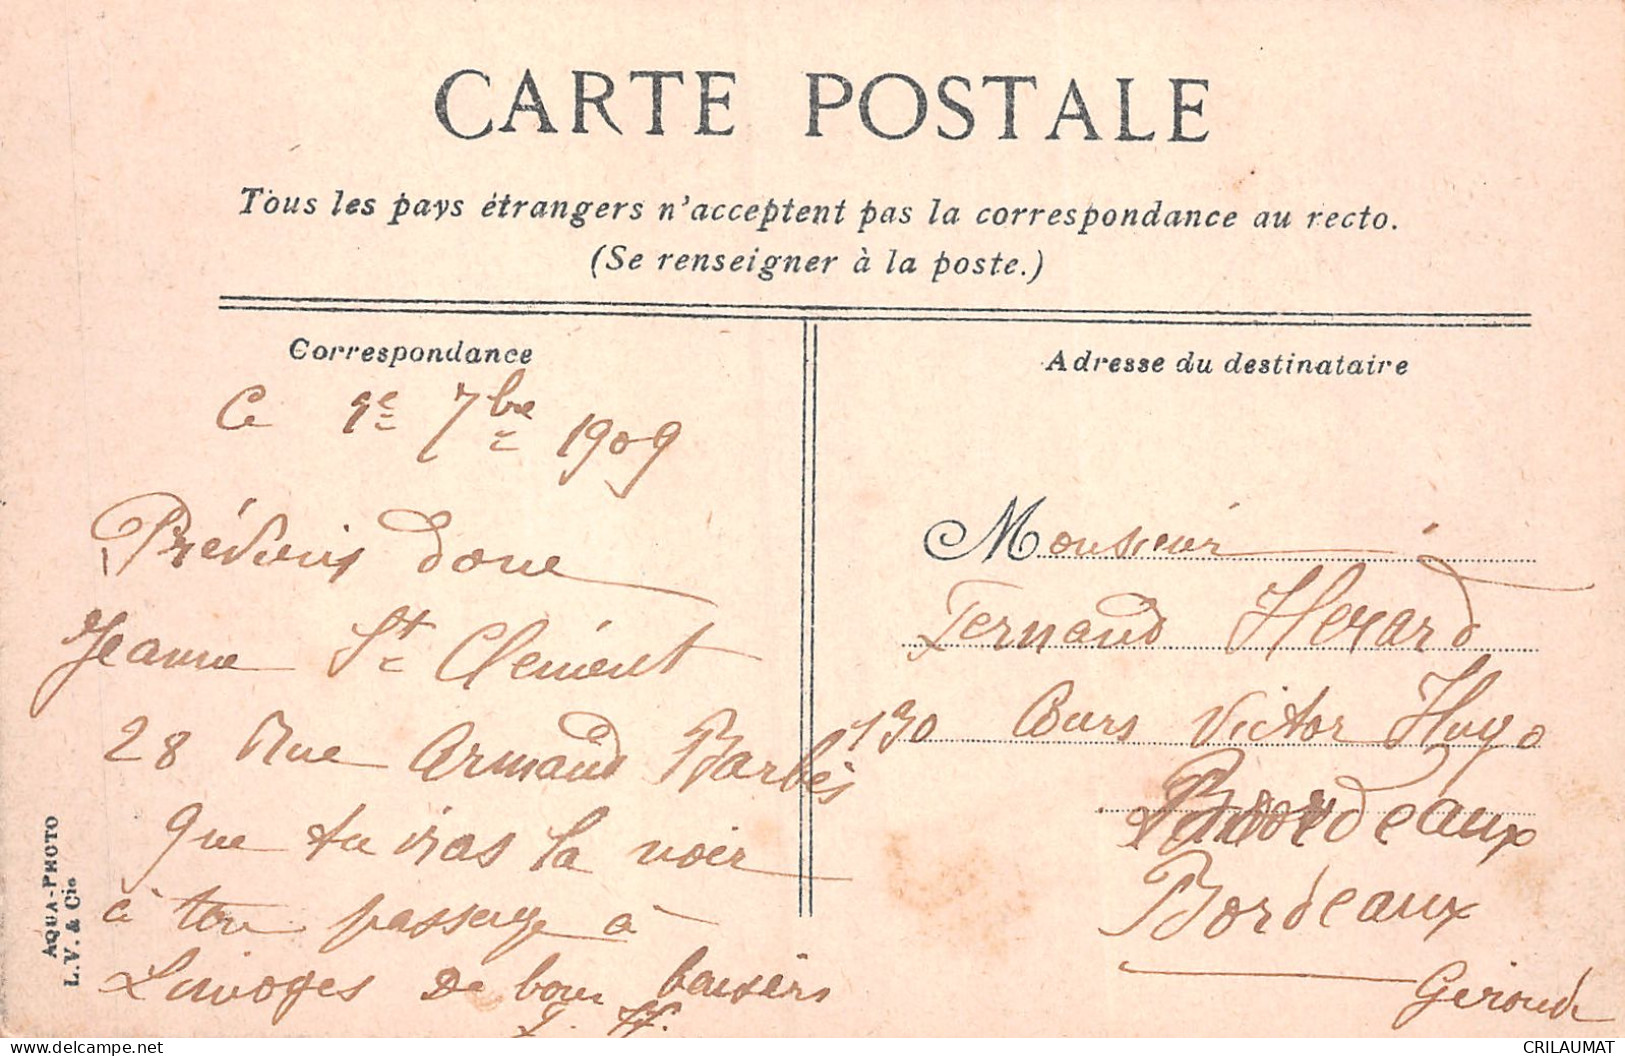 CARTE POSTALE
Tous les pays étrangers n'acceptent pas la correspondance au recto.
(Se renseigner à la poste.)
Correspondance
Ce 1e 7bre 1909
Préviens donc
Jeanne St Clément
28 Rue Armand Barbès
que tu iras la voir
à ton passage à
Limoges De bons baisers
Adresse du destinataire
Monsieur
Fernand Herard
130 Cours Victor Hugo
Bordeaux
Bordeaux
Gironde
AQUA-PHOTO
L.V. & Cie
CRILAUMAT